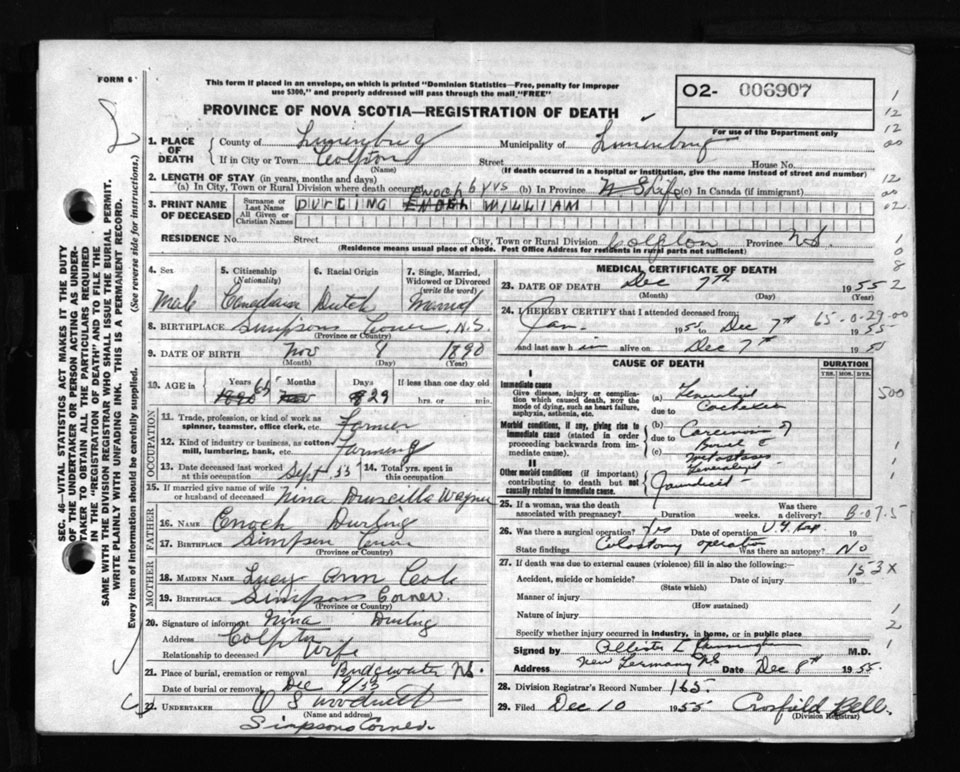 FORM 6
This form if placed in an envelope, on which is printed "Dominion Statistics—Free, penalty for improper
use $300," and properly addressed will pass through the mail "FREE"
02- 006907
PROVINCE OF NOVA SCOTIA—REGISTRATION OF DEATH
For use of the Department only
SEC. 46—VITAL STATISTICS ACT MAKES IT THE DUTY
OF THE UNDERTAKER OR PERSON ACTING AS UNDER-
TAKER TO OBTAIN ALL THE PARTICULARS REQUIRED
IN THE "REGISTRATION OF DEATH" AND TO FILE THE
SAME WITH THE DIVISION REGISTRAR WHO SHALL ISSUE THE BURIAL PERMIT.
WRITE PLAINLY WITH UNFADING INK. THIS IS A PERMANENT RECORD.
Every item of information should be carefully supplied. (See reverse side for instructions.)
1. PLACE OF DEATH
County of Lunenburg Municipality of Lunenburg
If in City or Town Colpton Street House No.
(Name) (If death occurred in a hospital or institution, give the name instead of street and number)
2. LENGTH OF STAY (in years, months and days)
(a) In City, Town or Rural Division where death occurred 6 yrs (b) In Province Life (c) In Canada (if immigrant)
3. PRINT NAME OF DECEASED
Surname or Last Name DURLING ENOCH WILLIAM
All Given or Christian Names
RESIDENCE No. Street City, Town or Rural Division Province N.S.
(Residence means usual place of abode. Post Office Address for residents in rural parts not sufficient)
4. Sex 5. Citizenship (Nationality) 6. Racial Origin 7. Single, Married, Widowed or Divorced (write the word)
Male Canadian Dutch Married
8. BIRTHPLACE Simpsons Corner, N.S.
(Province or Country)
9. DATE OF BIRTH Nov 8 1890
(Month) (Day) (Year)
10. AGE in Years 65 Months Days 29 If less than one day old
hrs. or min.
OCCUPATION
11. Trade, profession, or kind of work as spinner, teamster, office clerk, etc. Farmer
12. Kind of industry or business, as cotton mill, lumbering, bank, etc. Farming
13. Date deceased last worked at this occupation Sept 55 14. Total yrs. spent in this occupation
15. If married give name of wife or husband of deceased Nina Wagner
FATHER
16. NAME Enoch Durling
17. BIRTHPLACE Simpson Corner
(Province or Country)
MOTHER
18. MAIDEN NAME Lucy Ann
19. BIRTHPLACE Simpsons Corner.
(Province or Country)
20. Signature of informant Nina Durling
Address Colpton
Relationship to deceased Wife
21. Place of burial, cremation or removal Bridgewater N.S.
Date of burial or removal Dec 9/55
22. UNDERTAKER
(Name and address)
Simpsons Corner.
MEDICAL CERTIFICATE OF DEATH
23. DATE OF DEATH Dec 7th 1955
(Month) (Day) (Year)
24. I HEREBY CERTIFY that I attended deceased from:
Jan. 1955 to Dec 7th 1955
and last saw h im alive on Dec 7th 1955
65-0-29-00
CAUSE OF DEATH DURATION
YRS. MOS. DYS.
I
Immediate cause
Give disease, injury or complication which caused death, not the mode of dying, such as heart failure, asphyxia, asthenia, etc.
(a) Generalized Cachexia
due to
Morbid conditions, if any, giving rise to immediate cause (stated in order proceeding backwards from immediate cause).
(b) Carcinoma of
due to Bowel c
(c) metastases Generalized
II
Other morbid conditions (if important) contributing to death but not causally related to immediate cause. Jaundiced
500
25. If a woman, was the death associated with pregnancy? Duration weeks. Was there a delivery?
B-07.5
26. Was there a surgical operation? Yes Date of operation 19
State findings Colostomy operation Was there an autopsy? No
27. If death was due to external causes (violence) fill in also the following:—
153X
Accident, suicide or homicide? Date of injury 19
(State which)
Manner of injury
(How sustained)
Nature of injury
Specify whether injury occurred in industry, in home, or in public place
Signed by M.D.
Address New Germany NS Date Dec 8th 1955
28. Division Registrar's Record Number 165.
29. Filed Dec 10 1955 Crosfield Bell.
(Division Registrar)